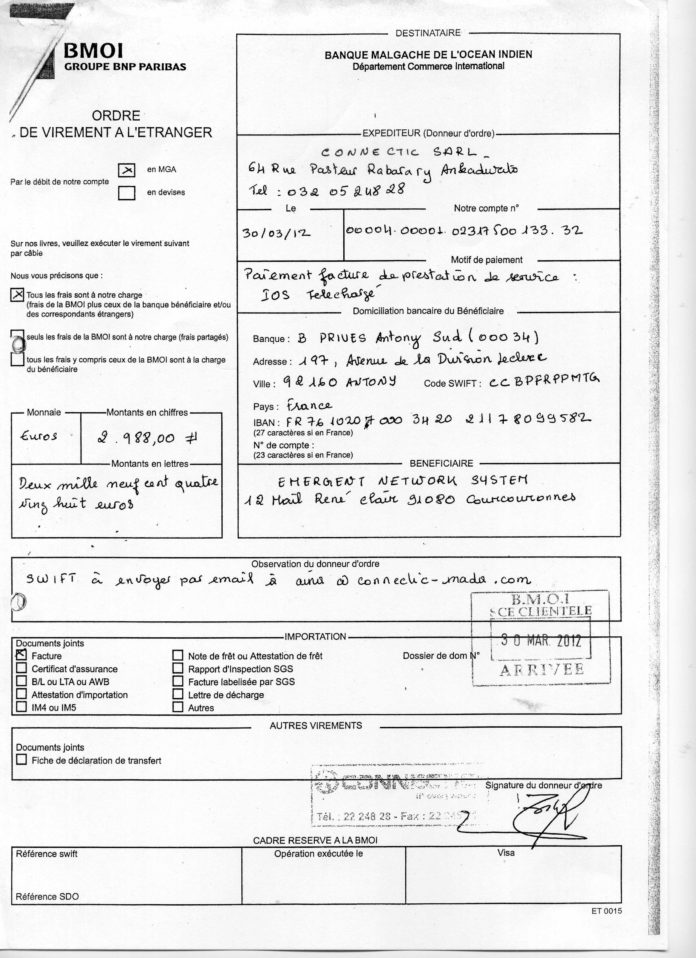 BMOI
GROUPE BNP PARIBAS
ORDRE
DE VIREMENT A L'ETRANGER
Par le débit de notre compte
en MGA
en devises
Sur nos livres, veuillez exécuter le virement suivant
par câble
Nous vous précisons que :
Tous les frais sont à notre charge
(frais de la BMOI plus ceux de la banque bénéficiaire et/ou
des correspondants étrangers)
seuls les frais de la BMOI sont à notre charge (frais partagés)
tous les frais y compris ceux de la BMOI sont à la charge
du bénéficiaire
Monnaie
Montants en chiffres
Euros
2.988,00 #
Montants en lettres
Deux mille neuf cent quatre
ving huit euros
DESTINATAIRE
BANQUE MALGACHE DE L'OCEAN INDIEN
Département Commerce International
EXPEDITEUR (Donneur d'ordre)
CONNECTIC SARL
64 Rue Pasteur Rabarary Ankadivato
Tel : 032 05 248 28
Le
Notre compte n°
30/03/12
00004.00001.02317500133.32
Motif de paiement
Paiement facture de prestation de service :
IOS Telechargé
Domiciliation bancaire du Bénéficiaire
Banque : B PRIVES Antony Sud (00034)
Adresse : 197, Avenue de la Division Leclerc
Ville : 92160 ANTONY Code SWIFT : CCBPFRPPMTG
Pays : France
IBAN : FR76 1020 7000 3420 2117 8099582
(27 caractères si en France)
N° de compte :
(23 caractères si en France)
BENEFICIAIRE
EMERGENT NETWORK SYSTEM
12 Mail René Clair 91080 Courcouronnes
Observation du donneur d'ordre
SWIFT à envoyer par email à aina @ connectic-mada.com
B.M.O.I
SCE CLIENTELE
30 MAR. 2012
ARRIVEE
IMPORTATION
Documents joints
Facture
Certificat d'assurance
B/L ou LTA ou AWB
Attestation d'importation
IM4 ou IM5
Note de frêt ou Attestation de frêt
Rapport d'Inspection SGS
Facture labelisée par SGS
Lettre de décharge
Autres
Dossier de dom N°
AUTRES VIREMENTS
Documents joints
Fiche de déclaration de transfert
Tél. : 22 248 28 - Fax : 22
Signature du donneur d'ordre
CADRE RESERVE A LA BMOI
Référence swift
Opération exécutée le
Visa
Référence SDO
ET 0015